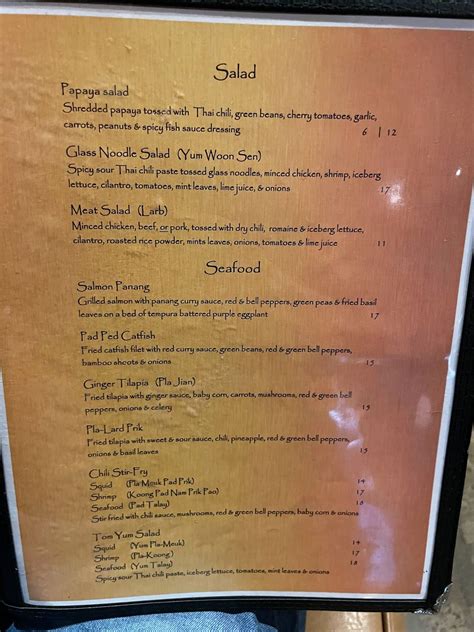 Salad
Papaya salad
Shredded papaya tossed with Thai chili, green beans, cherry tomatoes, garlic,
carrots, peanuts & spicy fish sauce dressing 6 | 12
Glass Noodle Salad (Yum Woon Sen)
Spicy sour Thai chili paste tossed glass noodles, minced chicken, shrimp, iceberg
lettuce, cilantro, tomatoes, mint leaves, lime juice, & onions 17
Meat Salad (Larb)
Minced chicken, beef, or pork, tossed with dry chili, romaine & iceberg lettuce,
cilantro, roasted rice powder, mints leaves, onions, tomatoes & lime juice 11
Seafood
Salmon Panang
Grilled salmon with panang curry sauce, red & bell peppers, green peas & fried basil
leaves on a bed of tempura battered purple eggplant 17
Pad Ped Catfish
Fried catfish filet with red curry sauce, green beans, red & green bell peppers,
bamboo shoots & onions 15
Ginger Tilapia (Pla Jian)
Fried tilapia with ginger sauce, baby corn, carrots, mushrooms, red & green bell
peppers, onions & celery 15
Pla-Lard Prik
Fried tilapia with sweet & sour sauce, chili, pineapple, red & green bell peppers,
onions & basil leaves 15
Chili Stir-Fry
Squid (Pla-Meuk Pad Prik) 14
Shrimp (Koong Pad Nam Prik Pao) 17
Seafood (Pad Talay) 18
Stir fried with chili sauce, mushrooms, red & green bell peppers, baby corn & onions
Tom Yum Salad
Squid (Yum Pla-Meuk) 14
Shrimp (Pla-Koong) 17
Seafood (Yum Talay) 18
Spicy sour Thai chili paste, iceberg lettuce, tomatoes, mint leaves & onions